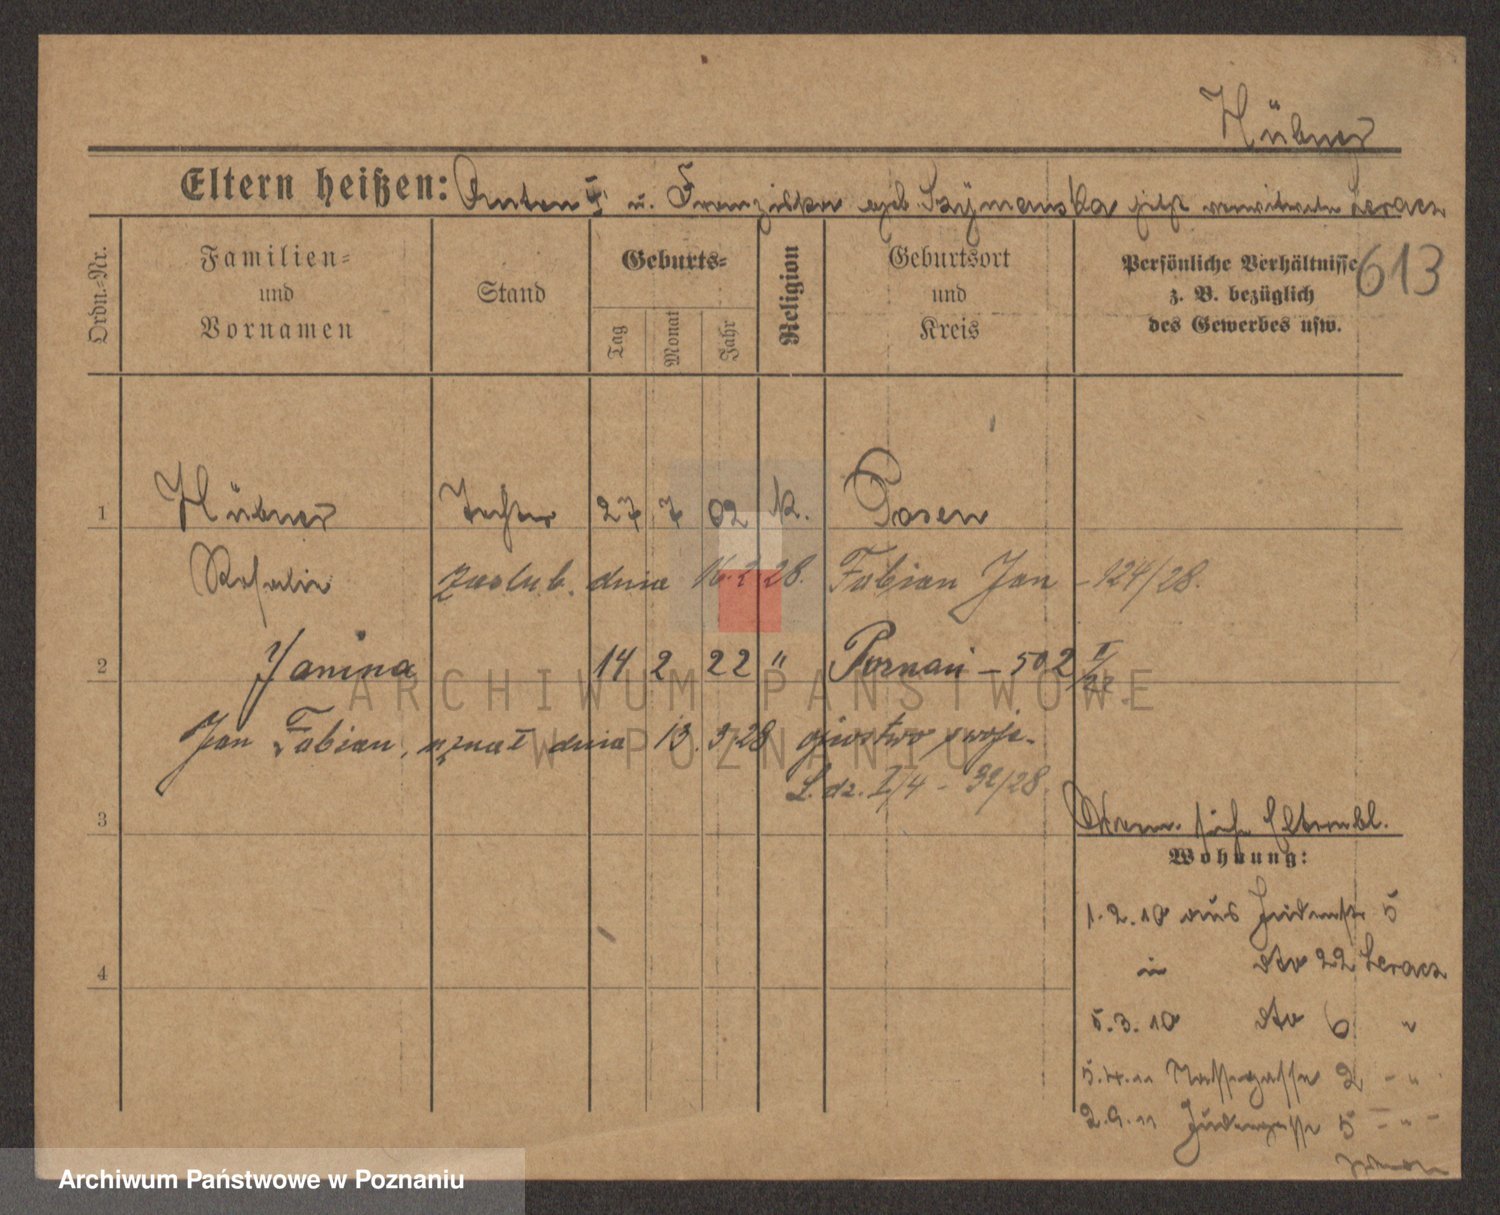 Hübner
Eltern heißen: Anton † u. Franziska geb. Szymanska jetzt verwitwete Leracz
Ordn.-Nr.
Familien= und Vornamen
Stand
Geburts=
Tag
Monat
Jahr
Religion
Geburtsort und Kreis
Persönliche Verhältnisse z. B. bezüglich des Gewerbes usw.
613
1 Hübner Tochter 27 7 02 k. Posen
Rosalie zaślub. dnia 28. Fabian Jan - 124/28.
2 Janina 14 2 22 " Poznań - 502
Jan Fabian, uznał dnia 13. 3. 28 ojcostwo swoje.
L. dz. I/4 - 32/28.
3
siehe Elternbl.
Wohnung:
1.2.10 aus Judenstr 5
in dto 22 Leracz
5.3.10 dto 6 "
4
5.4.11 Nassegasse 2 - "
2.9.11 Judengasse 5 - " -
ARCHIWUM PAŃSTWOWE
W POZNANIU
Archiwum Państwowe w Poznaniu